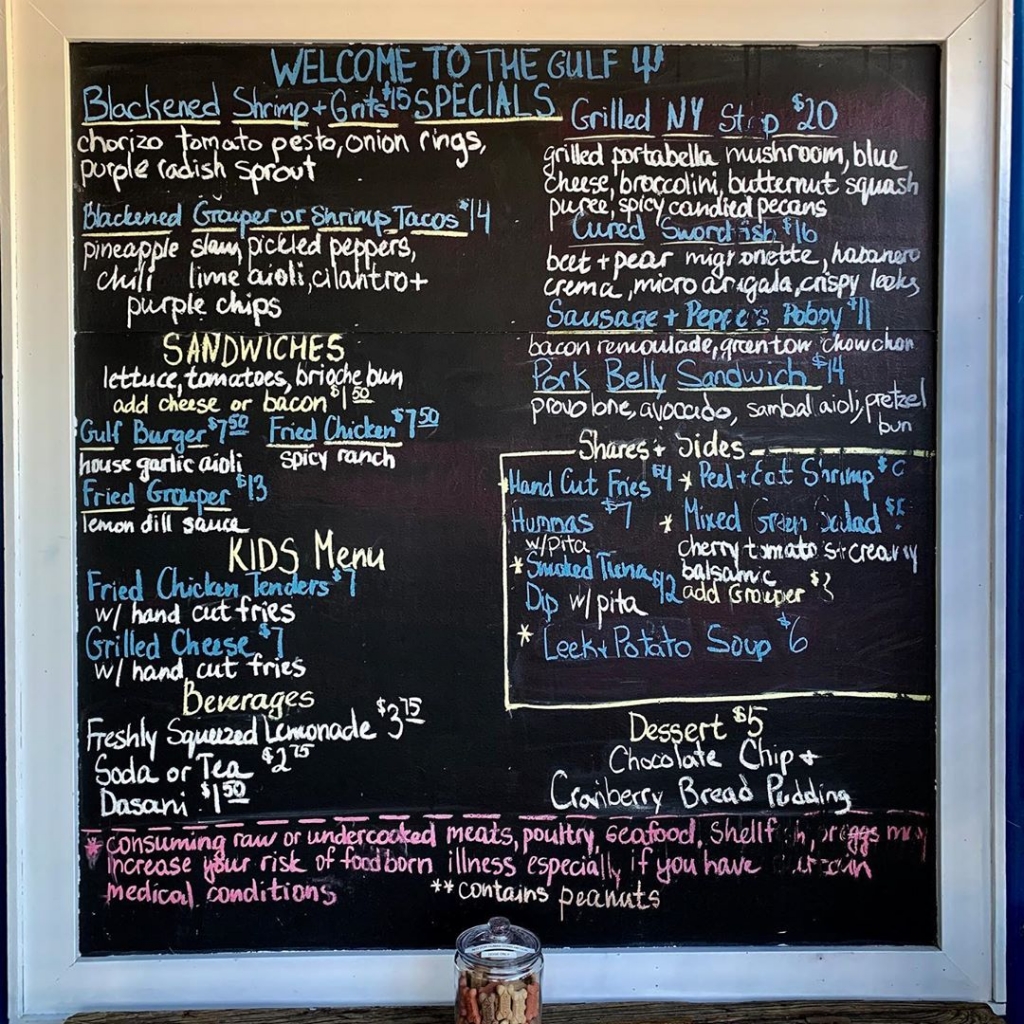 WELCOME TO THE GULF
Blackened Shrimp + Grits $15 SPECIALS
chorizo tomato pesto, onion rings,
purple radish sprout
Blackened Grouper or Shrimp Tacos $14
pineapple slaw, pickled peppers,
chili lime aioli, cilantro +
purple chips
SANDWICHES
lettuce, tomatoes, brioche bun
add cheese or bacon $1.50
Gulf Burger $7.50 Fried Chicken $7.50
house garlic aioli spicy ranch
Fried Grouper $13
lemon dill sauce
KIDS Menu
Fried Chicken Tenders $7
w/ hand cut fries
Grilled Cheese $7
w/ hand cut fries
Beverages
Freshly Squeezed Lemonade $3.75
Soda or Tea $2.75
Dasani $1.50
Grilled NY Strip $20
grilled portabella mushroom, blue
cheese, broccolini, butternut squash
puree, spicy candied pecans
Cured Swordfish $16
beet + pear migronette, habanero
crema, micro arugala, crispy leeks
Sausage + Peppers $11
bacon remoulade, chow chow
Pork Belly Sandwich $14
provolone, avocado, sambal aioli, pretzel
bun
Shares + Sides
Hand Cut Fries $4 * Peel + Eat Shrimp
Hummas $7 * Mixed Green Salad
w/Pita cherry tomato
* Smoked Tuna $12 balsamic
Dip w/ pita add Grouper
* Leek + Potato Soup $6
Dessert $5
Chocolate Chip +
Cranberry Bread Pudding
* consuming raw or undercooked meats, poultry, seafood, shellfish, or eggs may
increase your risk of foodborn illness especially if you have certain
medical conditions **contains peanuts